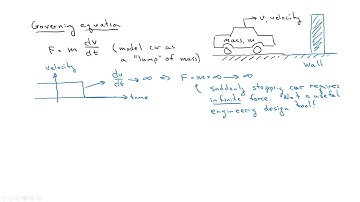 Governing equation
F = m dv/dt (model car as a "lump" of mass)
v, velocity
mass, m
Wall
velocity
time
dv/dt → ∞ ⇒ F = m * ∞ → ∞
suddenly stopping car requires
infinite force. Not a useful
engineering design tool!